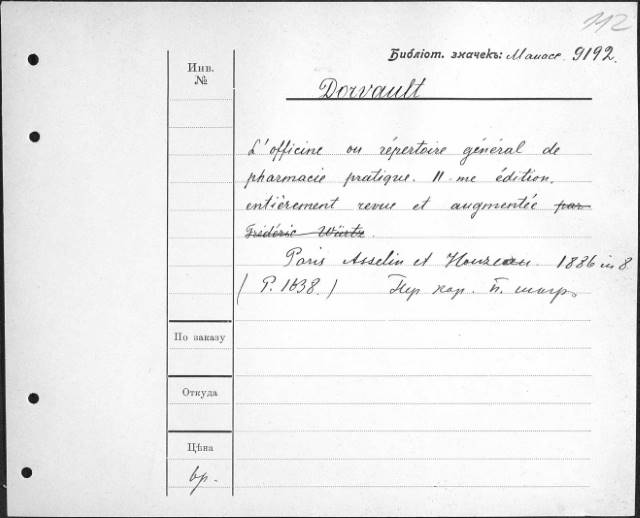 112
Библіот. значекъ: Манасс. 9192.
Инв.
№
Dorvault
L'officine ou répertoire général de
pharmacie pratique. 11-me édition.
entièrement revue et augmentée par
Frédéric Würtz.
Paris Asselin et Houzeau. 1886 in 8
(P. 1638.) Пер кор. п.
По заказу
Откуда
Цѣна
бр.